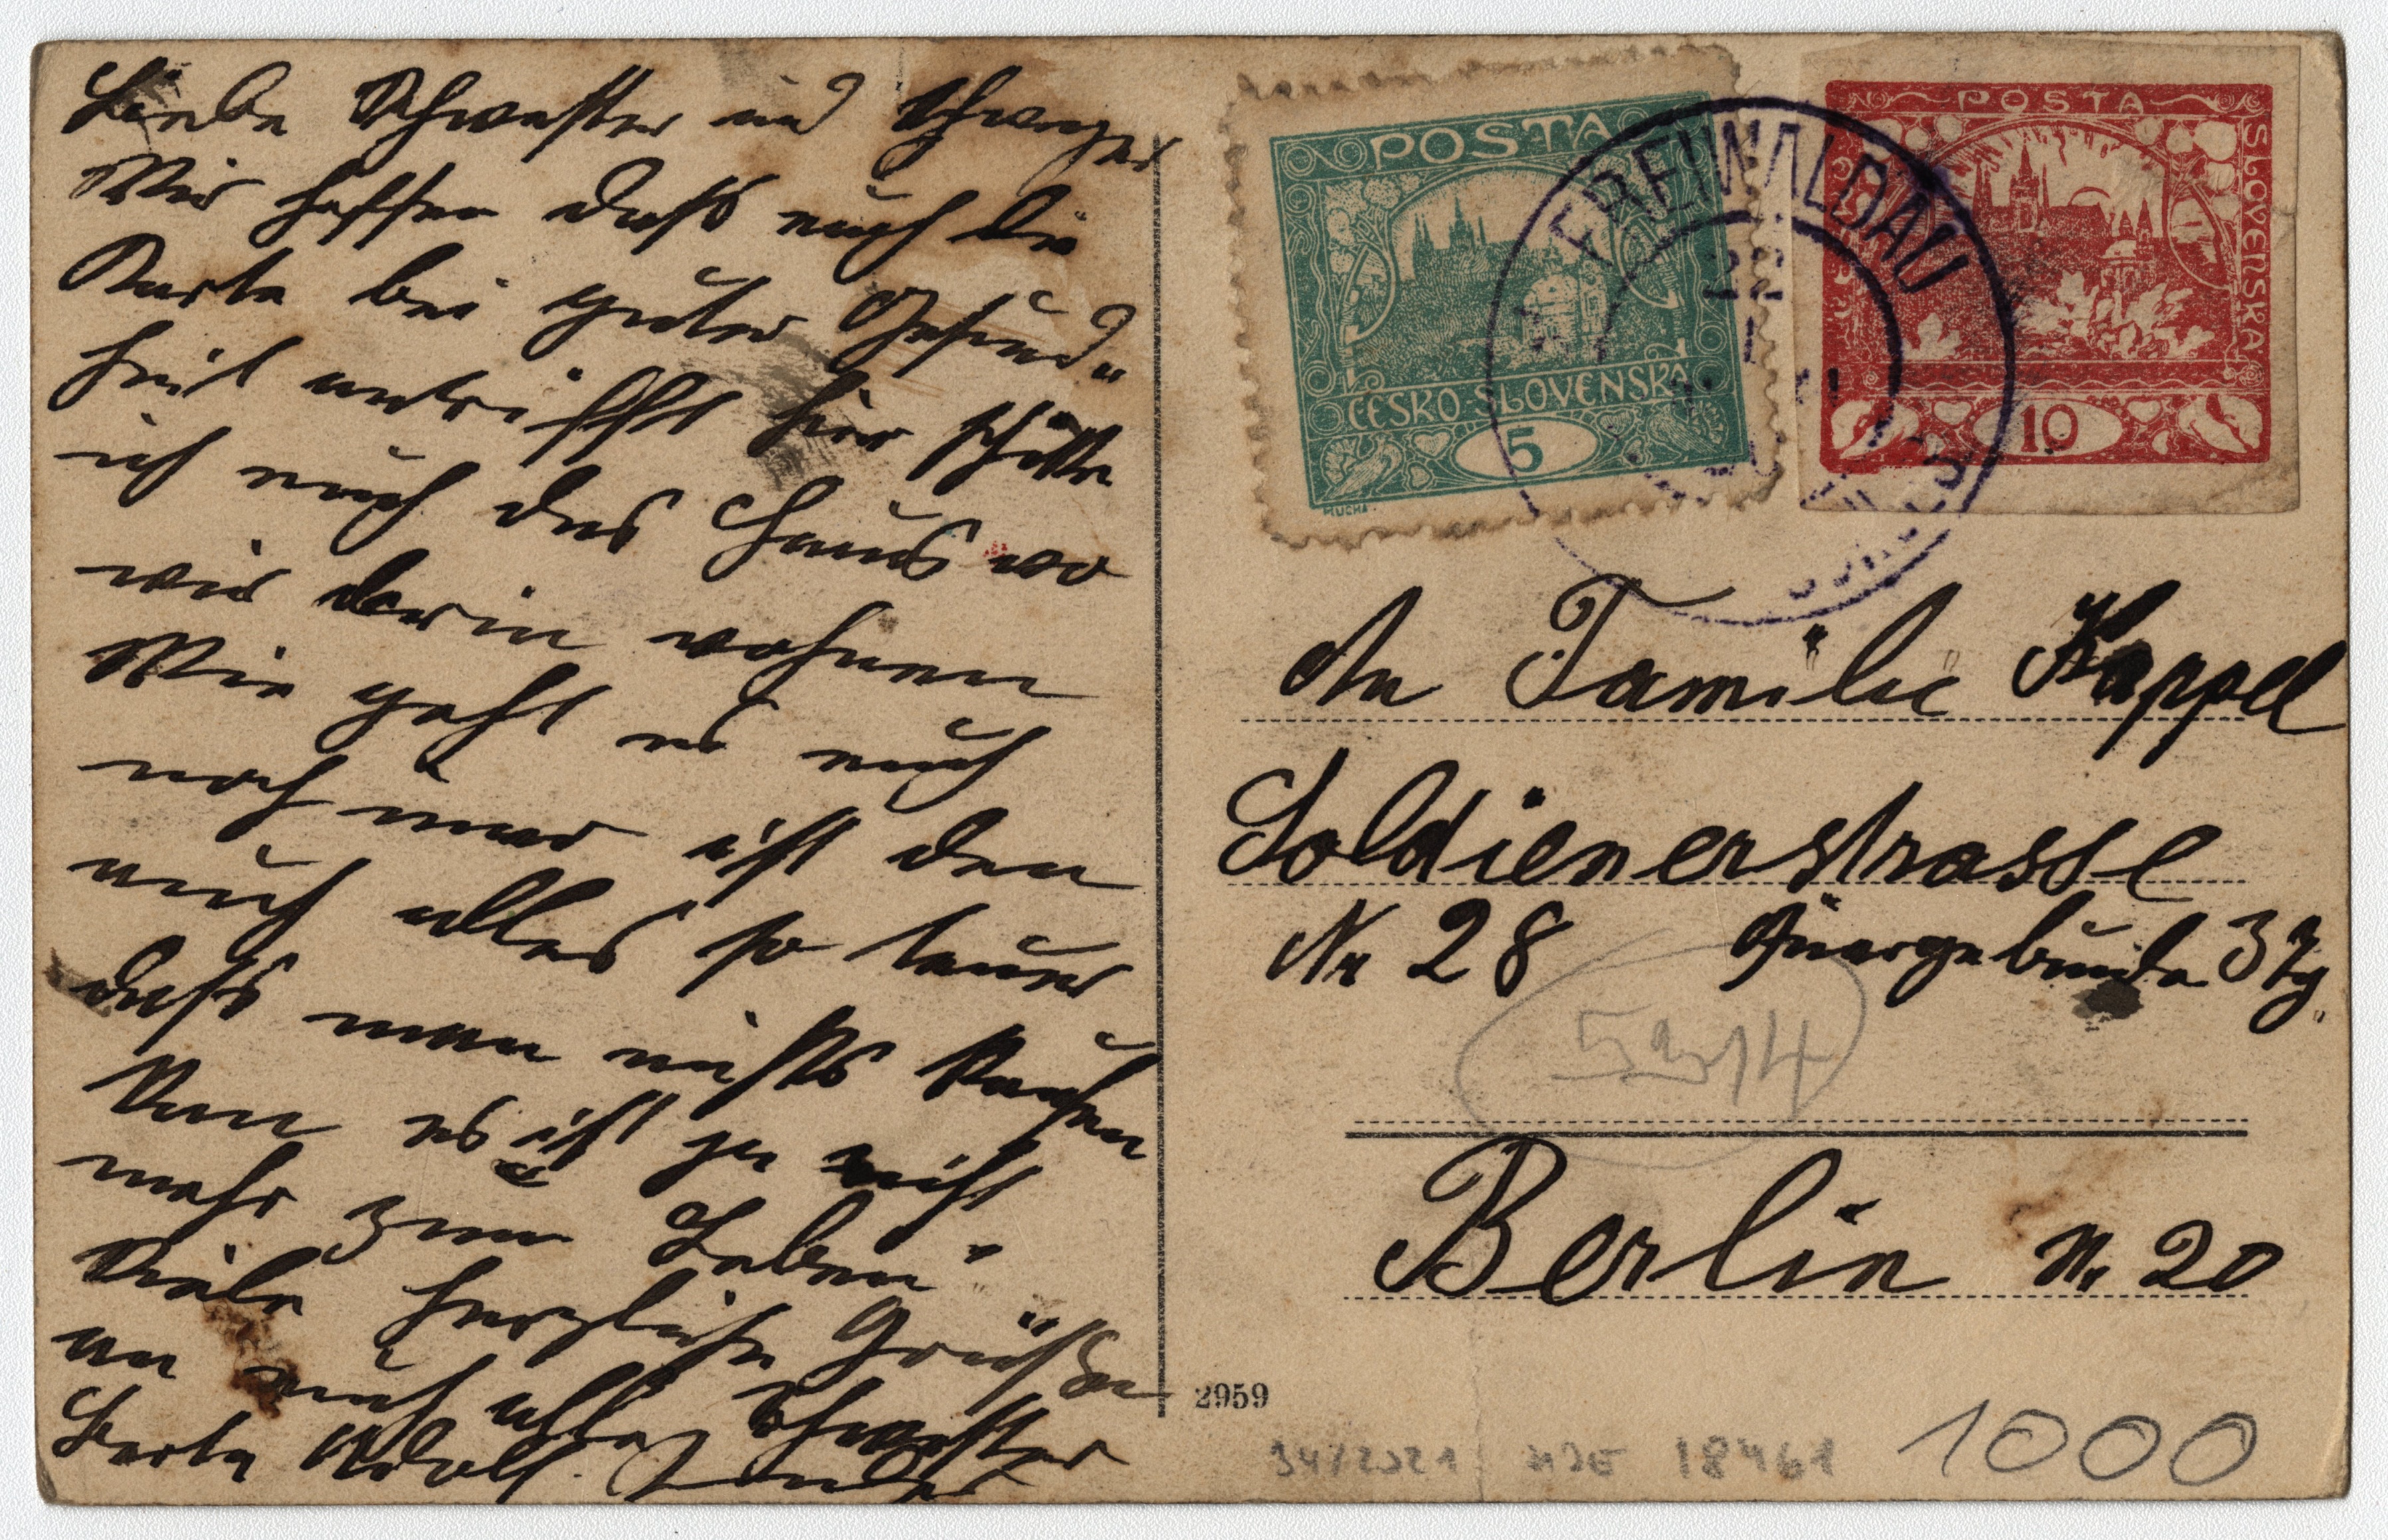 Liebe Schwester und Schwager
Wir hoffen dass euch die
Karte bei guter Gesund„
heit antrifft hier schike
ich euch das Haus wo
wir darin wohnen
Wie geht es euch
noch immer ist den
euch alles so teuer
dass man nichts kaufen
kan es ist ja nicht
mehr zum Leben
Viele herzliche Grüße
an euch alle Schwester
Berta Adolf
POSTA
ČESKO-SLOVENSKÁ
5
MUCHA
POSTA
ČESKO
SLOVENSKÁ
10
FREIWALDAU
An Familie Kappel
Soldienerstrasse
Nr 28 Quergebeude 3 Tg
5914
Berlin Nr 20
2959
34/2021 18461 1000